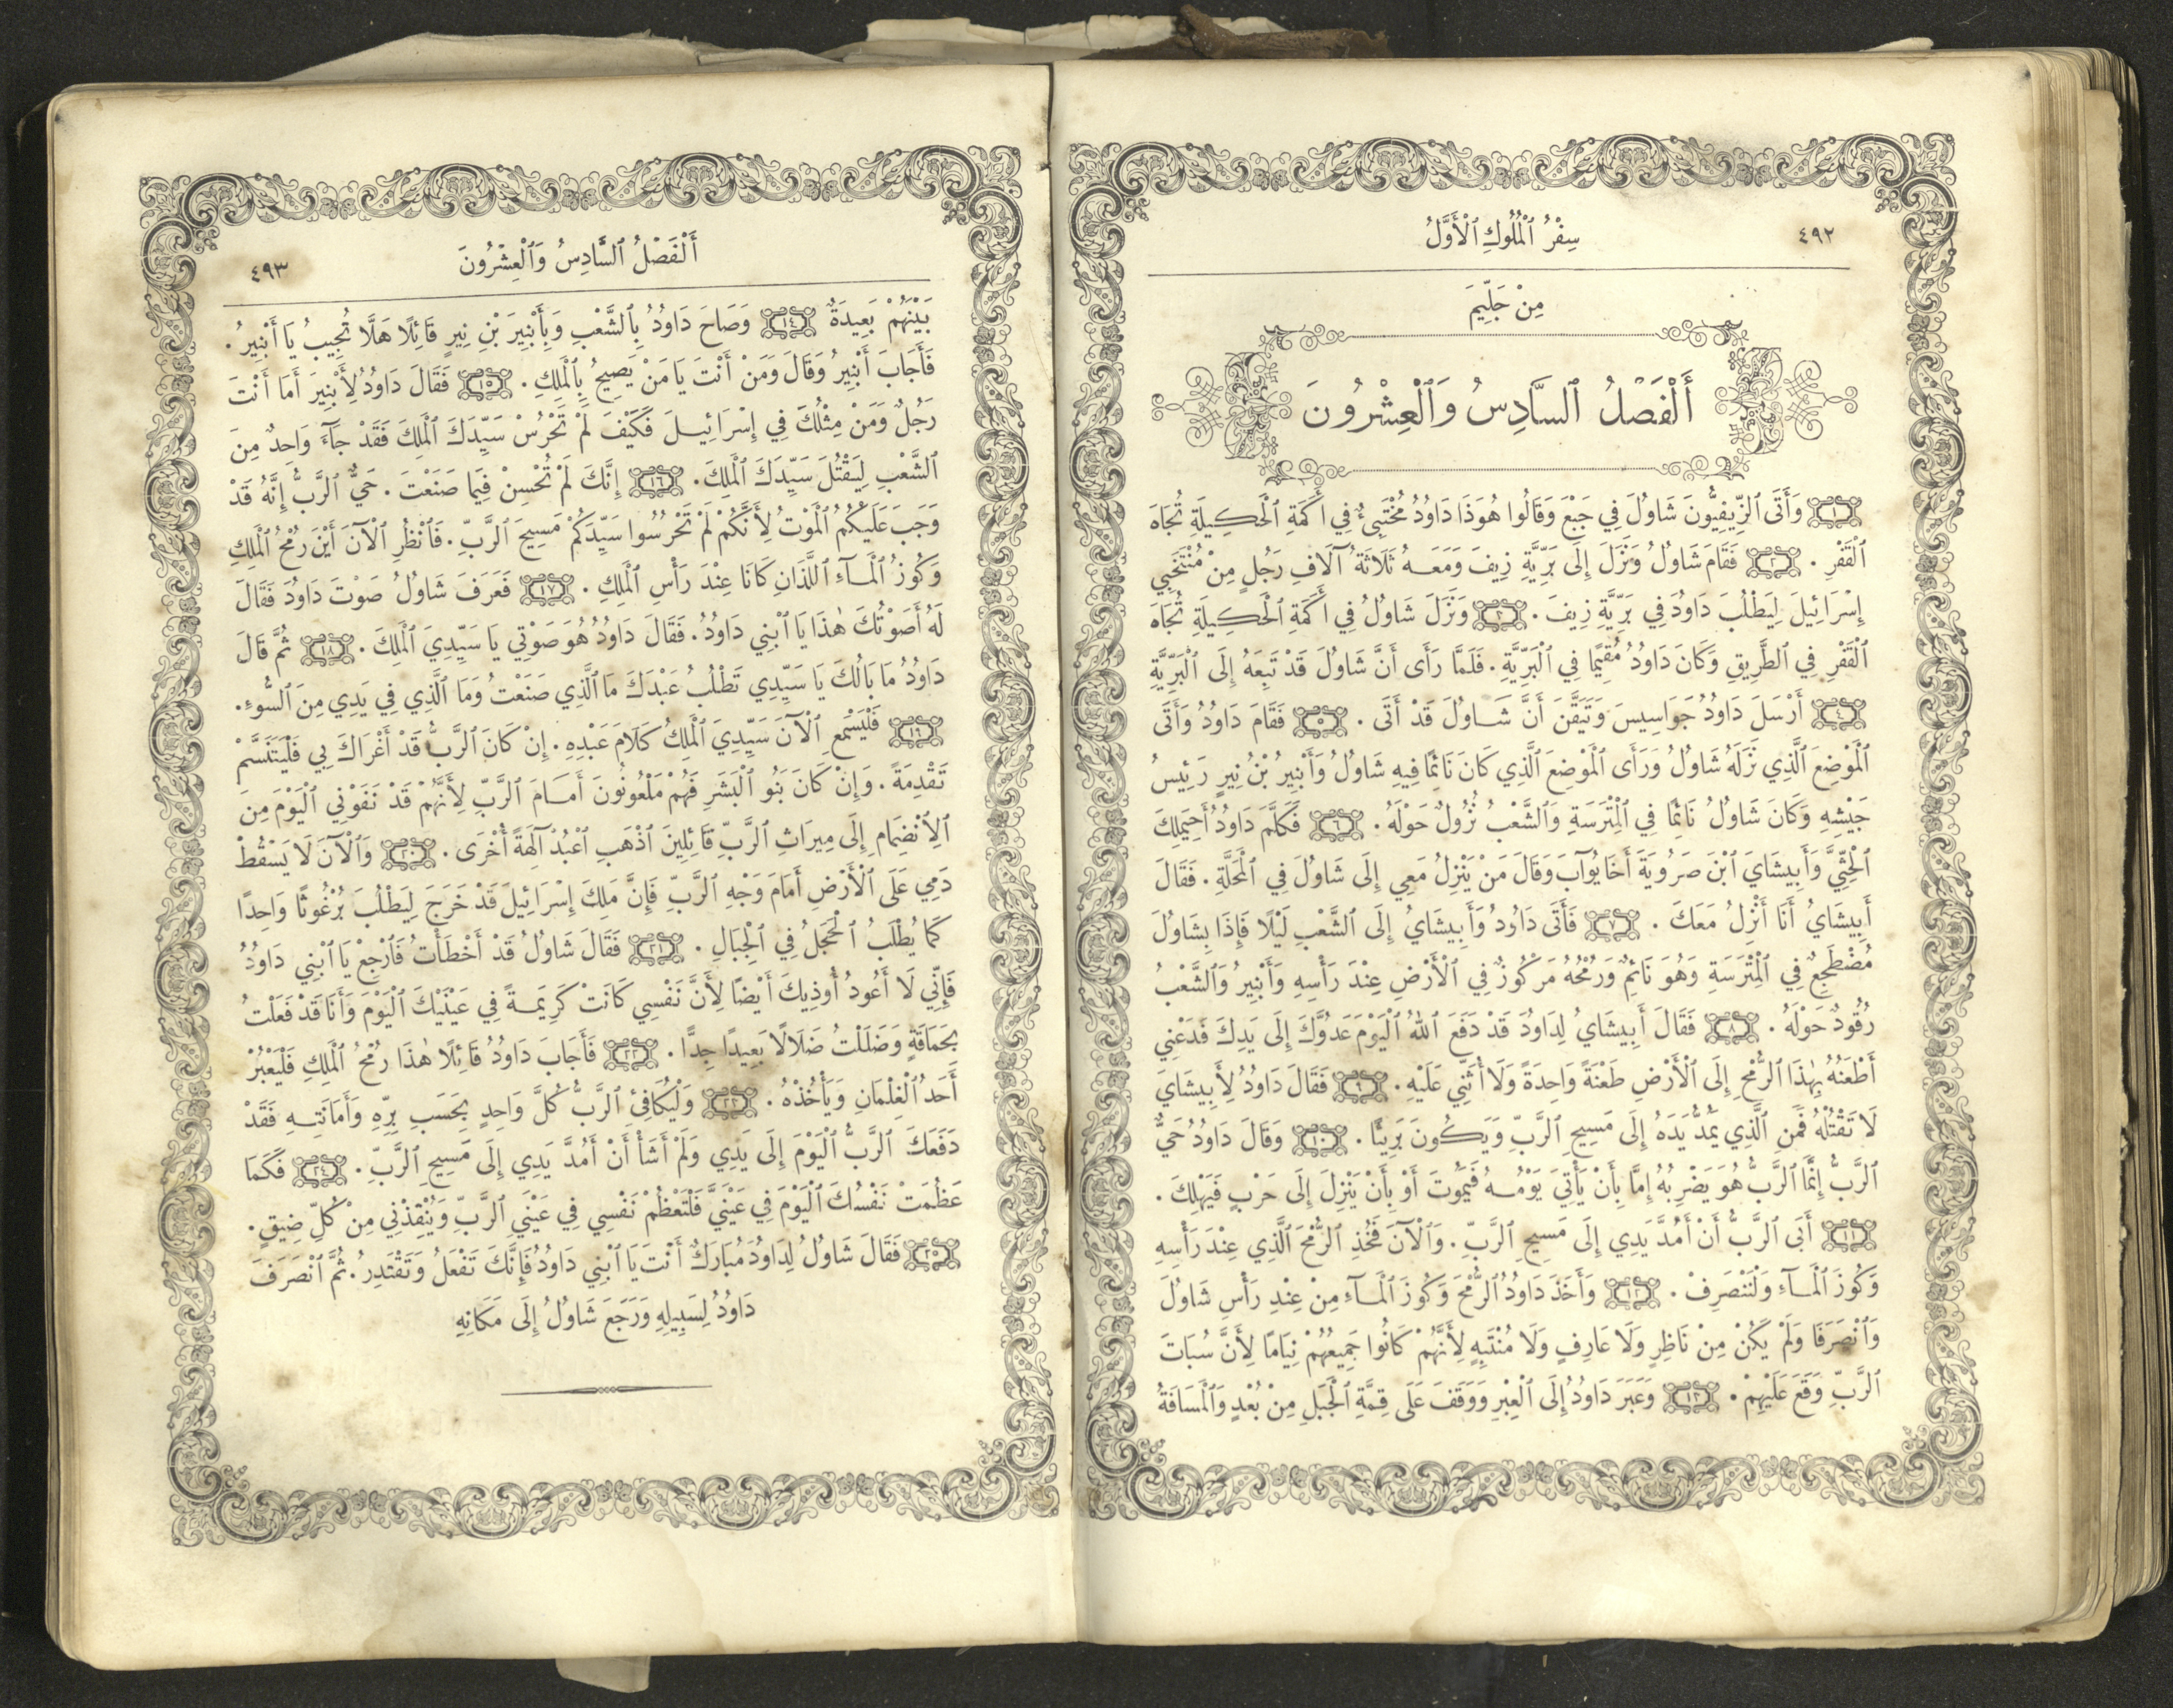 ٤٩٢
سِفْرُ ٱلْمُلُوكِ ٱلْأَوَّلُ
مِنْ جَلِّيمَ
أَلْفَصْلُ ٱلسَّادِسُ وَٱلْعِشْرُونَ
١ وَأَتَى ٱلزِّيفِيُّونَ شَاوُلَ فِي جَبْعَ وَقَالُوا هُوَذَا دَاوُدُ مُخْتَبِئٌ فِي أَكَمَةِ ٱلْحَكِيلَةِ تُجَاهَ
ٱلْقَفْرِ . ٢ فَقَامَ شَاوُلُ وَنَزَلَ إِلَى بَرِّيَّةِ زِيفَ وَمَعَهُ ثَلَاثَةُ آلَافِ رَجُلٍ مِنْ مُنْتَخَبِي
إِسْرَائِيلَ لِيَطْلُبَ دَاوُدَ فِي بَرِّيَّةِ زِيفَ . ٣ وَنَزَلَ شَاوُلُ فِي أَكَمَةِ ٱلْحَكِيلَةِ تُجَاهَ
ٱلْقَفْرِ فِي ٱلطَّرِيقِ وَكَانَ دَاوُدُ مُقِيمًا فِي ٱلْبَرِّيَّةِ . فَلَمَّا رَأَى أَنَّ شَاوُلَ قَدْ تَبِعَهُ إِلَى ٱلْبَرِّيَّةِ
٤ أَرْسَلَ دَاوُدُ جَوَاسِيسَ وَتَيَقَّنَ أَنَّ شَاوُلَ قَدْ أَتَى . ٥ فَقَامَ دَاوُدُ وَأَتَى
ٱلْمَوْضِعَ ٱلَّذِي نَزَلَهُ شَاوُلُ وَرَأَى ٱلْمَوْضِعَ ٱلَّذِي كَانَ نَائِمًا فِيهِ شَاوُلُ وَأَبْنِيرُ بْنُ نِيرٍ رَئِيسُ
جَيْشِهِ وَكَانَ شَاوُلُ نَائِمًا فِي ٱلْمِتْرَسَةِ وَٱلشَّعْبُ نُزُولٌ حَوْلَهُ . ٦ فَكَلَّمَ دَاوُدُ أَحِيمَلِكَ
ٱلْحِثِّيَّ وَأَبِيشَايَ ٱبْنَ صَرُويَةَ أَخَا يُوآبَ وَقَالَ مَنْ يَنْزِلُ مَعِي إِلَى شَاوُلَ فِي ٱلْمَحَلَّةِ . فَقَالَ
أَبِيشَايُ أَنَا أَنْزِلُ مَعَكَ . ٧ فَأَتَى دَاوُدُ وَأَبِيشَايُ إِلَى ٱلشَّعْبِ لَيْلًا فَإِذَا بِشَاوُلَ
مُضْطَجِعٌ فِي ٱلْمِتْرَسَةِ وَهُوَ نَائِمٌ وَرُمْحُهُ مَرْكُوزٌ فِي ٱلْأَرْضِ عِنْدَ رَأْسِهِ وَأَبْنِيرُ وَٱلشَّعْبُ
رُقُودٌ حَوْلَهُ . ٨ فَقَالَ أَبِيشَايُ لِدَاوُدَ قَدْ دَفَعَ ٱللهُ ٱلْيَوْمَ عَدُوَّكَ إِلَى يَدِكَ فَدَعْنِي
أَطْعَنُهُ بِهٰذَا ٱلرُّمْحِ إِلَى ٱلْأَرْضِ طَعْنَةً وَاحِدَةً وَلَا أُثَنِّي عَلَيْهِ . ٩ فَقَالَ دَاوُدُ لِأَبِيشَايَ
لَا تَقْتُلْهُ فَمَنِ ٱلَّذِي يَمُدُّ يَدَهُ إِلَى مَسِيحِ ٱلرَّبِّ وَيَكُونَ بَرِيئًا . ١٠ وَقَالَ دَاوُدُ حَيٌّ
ٱلرَّبُّ إِنَّمَا ٱلرَّبُّ هُوَ يَضْرِبُهُ إِمَّا بِأَنْ يَأْتِيَ يَوْمُهُ فَيَمُوتَ أَوْ بِأَنْ يَنْزِلَ إِلَى حَرْبٍ فَيَهْلِكَ .
١١ أَبَى ٱلرَّبُّ أَنْ أَمُدَّ يَدِي إِلَى مَسِيحِ ٱلرَّبِّ . وَٱلْآنَ فَخُذِ ٱلرُّمْحَ ٱلَّذِي عِنْدَ رَأْسِهِ
وَكُوزَ ٱلْمَآءِ وَلْنَنْصَرِفْ . ١٢ وَأَخَذَ دَاوُدُ ٱلرُّمْحَ وَكُوزَ ٱلْمَآءِ مِنْ عِنْدِ رَأْسِ شَاوُلَ
وَٱنْصَرَفَا وَلَمْ يَكُنْ مِنْ نَاظِرٍ وَلَا عَارِفٍ وَلَا مُنْتَبِهٍ لِأَنَّهُمْ كَانُوا جَمِيعُهُمْ نِيَامًا لِأَنَّ سُبَاتَ
ٱلرَّبِّ وَقَعَ عَلَيْهِمْ . ١٣ وَعَبَرَ دَاوُدُ إِلَى ٱلْعِبْرِ وَوَقَفَ عَلَى قِمَّةِ ٱلْجَبَلِ مِنْ بُعْدٍ وَٱلْمَسَافَةُ
أَلْفَصْلُ ٱلسَّادِسُ وَٱلْعِشْرُونَ
٤٩٣
بَيْنَهُمْ بَعِيدَةٌ ١٤ وَصَاحَ دَاوُدُ بِٱلشَّعْبِ وَبِأَبْنِيرَ بْنِ نِيرٍ قَائِلًا هَلَّا تُجِيبُ يَا أَبْنِيرُ .
فَأَجَابَ أَبْنِيرُ وَقَالَ وَمَنْ أَنْتَ يَا مَنْ يَصِيحُ بِٱلْمَلِكِ . ١٥ فَقَالَ دَاوُدُ لِأَبْنِيرَ أَمَا أَنْتَ
رَجُلٌ وَمَنْ مِثْلُكَ فِي إِسْرَائِيلَ فَكَيْفَ لَمْ تَحْرُسْ سَيِّدَكَ ٱلْمَلِكَ فَقَدْ جَآءَ وَاحِدٌ مِنَ
ٱلشَّعْبِ لِيَقْتُلَ سَيِّدَكَ ٱلْمَلِكَ . ١٦ إِنَّكَ لَمْ تُحْسِنْ فِيمَا صَنَعْتَ . حَيٌّ ٱلرَّبُّ إِنَّهُ قَدْ
وَجَبَ عَلَيْكُمُ ٱلْمَوْتُ لِأَنَّكُمْ لَمْ تَحْرُسُوا سَيِّدَكُمْ مَسِيحَ ٱلرَّبِّ . فَٱنْظُرِ ٱلْآنَ أَيْنَ رُمْحُ ٱلْمَلِكِ
وَكُوزُ ٱلْمَآءِ ٱللَّذَانِ كَانَا عِنْدَ رَأْسِ ٱلْمَلِكِ . ١٧ فَعَرَفَ شَاوُلُ صَوْتَ دَاوُدَ فَقَالَ
لَهُ أَصَوْتُكَ هٰذَا يَا ٱبْنِي دَاوُدُ . فَقَالَ دَاوُدُ هُوَ صَوْتِي يَا سَيِّدِيَ ٱلْمَلِكَ . ١٨ ثُمَّ قَالَ
دَاوُدُ مَا بَالُكَ يَا سَيِّدِي تَطْلُبُ عَبْدَكَ مَا ٱلَّذِي صَنَعْتُ وَمَا ٱلَّذِي فِي يَدِي مِنَ ٱلسُّوءِ .
١٩ فَلْيَسْمَعِ ٱلْآنَ سَيِّدِيَ ٱلْمَلِكُ كَلَامَ عَبْدِهِ . إِنْ كَانَ ٱلرَّبُّ قَدْ أَغْرَاكَ بِي فَلْيَتَنَسَّمْ
تَقْدِمَةً . وَإِنْ كَانَ بَنُو ٱلْبَشَرِ فَهُمْ مَلْعُونُونَ أَمَامَ ٱلرَّبِّ لِأَنَّهُمْ قَدْ نَفَوْنِي ٱلْيَوْمَ مِنَ
ٱلِٱنْضِمَامِ إِلَى مِيرَاثِ ٱلرَّبِّ قَائِلِينَ ٱذْهَبِ ٱعْبُدْ آلِهَةً أُخْرَى . ٢٠ وَٱلْآنَ لَا يَسْقُطْ
دَمِي عَلَى ٱلْأَرْضِ أَمَامَ وَجْهِ ٱلرَّبِّ فَإِنَّ مَلِكَ إِسْرَائِيلَ قَدْ خَرَجَ لِيَطْلُبَ بُرْغُوثًا وَاحِدًا
كَمَا يُطْلَبُ ٱلْحَجَلُ فِي ٱلْجِبَالِ . ٢١ فَقَالَ شَاوُلُ قَدْ أَخْطَأْتُ فَٱرْجِعْ يَا ٱبْنِي دَاوُدُ
فَإِنِّي لَا أَعُودُ أُوذِيكَ أَيْضًا لِأَنَّ نَفْسِي كَانَتْ كَرِيمَةً فِي عَيْنَيْكَ ٱلْيَوْمَ وَأَنَا قَدْ فَعَلْتُ
بِحَمَاقَةٍ وَضَلَلْتُ ضَلَالًا بَعِيدًا جِدًّا . ٢٢ فَأَجَابَ دَاوُدُ قَائِلًا هٰذَا رُمْحُ ٱلْمَلِكِ فَلْيَعْبُرْ
أَحَدُ ٱلْغِلْمَانِ وَيَأْخُذْهُ . ٢٣ وَلْيُكَافِئِ ٱلرَّبُّ كُلَّ وَاحِدٍ بِحَسَبِ بِرِّهِ وَأَمَانَتِهِ فَقَدْ
دَفَعَكَ ٱلرَّبُّ ٱلْيَوْمَ إِلَى يَدِي وَلَمْ أَشَأْ أَنْ أَمُدَّ يَدِي إِلَى مَسِيحِ ٱلرَّبِّ . ٢٤ فَكَمَا
عَظُمَتْ نَفْسُكَ ٱلْيَوْمَ فِي عَيْنَيَّ فَلْتَعْظُمْ نَفْسِي فِي عَيْنَيِ ٱلرَّبِّ وَيُنْقِذْنِي مِنْ كُلِّ ضِيقٍ .
٢٥ فَقَالَ شَاوُلُ لِدَاوُدَ مُبَارَكٌ أَنْتَ يَا ٱبْنِي دَاوُدُ فَإِنَّكَ تَفْعَلُ وَتَقْتَدِرُ . ثُمَّ ٱنْصَرَفَ
دَاوُدُ لِسَبِيلِهِ وَرَجَعَ شَاوُلُ إِلَى مَكَانِهِ